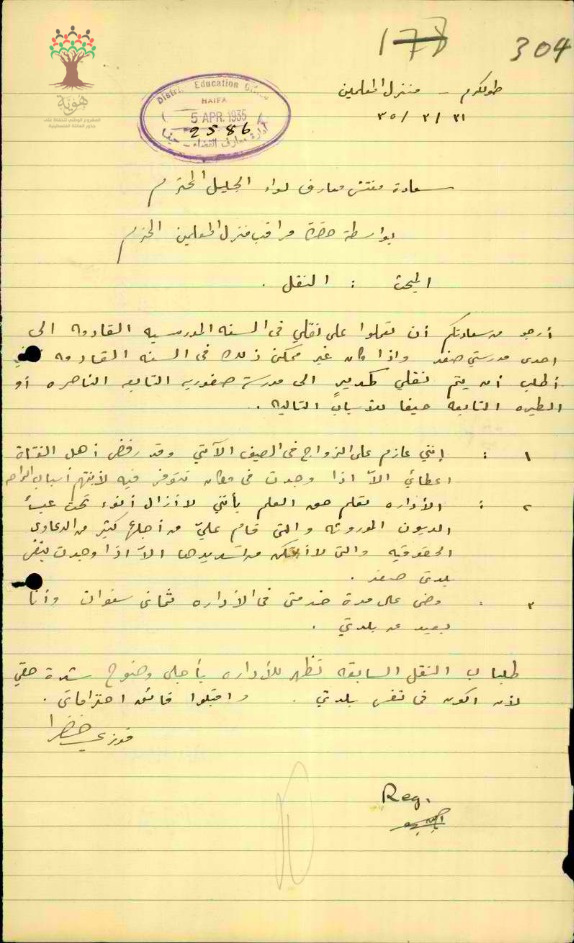 178
304
هوية
District Education Office
HAIFA
5 APR. 1935
2586
طولكرم - منزل المعلمين
٣٥/٣/٣١
سعادة مفتش معارف لواء الجليل المحترم
بواسطة حضرة مراقب منزل المعلمين المحترم
المبحث : النقل .
أرجو من سعادتكم أن تعملوا على نقلي في السنه المدرسيه القادمه الى
احدى مدرستي صفد واذا كان غير ممكن ذلك في السنه القادمه
أطلب أن يتم نقلي كمدير الى مدرسة صفوريه التابعه الناصره أو
الطيره التابعة حيفا للاسباب التاليه .
١ : إنني عازم على الزواج في الصيف الآتي وقد رفض أهل الفتاة
اعطائي الا اذا وجدت في مكان تتوفر فيه لابنتهم أسباب الراحه
٢ : الأداره تعلم حق العلم بأنني لا أزال أنوء تحت عبئ
الديون الموروثه والتي قام عليّ من أجلها كثير من الدعاوى
الحقوقيه والتي لا أتمكن من تسديدها الا اذا وجدت بنفس
بلدتي صفد .
٣ . مضى على مدة خدمتي في الأداره ثماني سنوات وأنا
بعيد عن بلدتي .
طلبات النقل السابقه تظهر للأداره بأجلى وضوح شدة حقي
لأن اكون في نفس بلدتي . واقبلوا فائق احتراماتي .
فوزي خضرا
Reg.